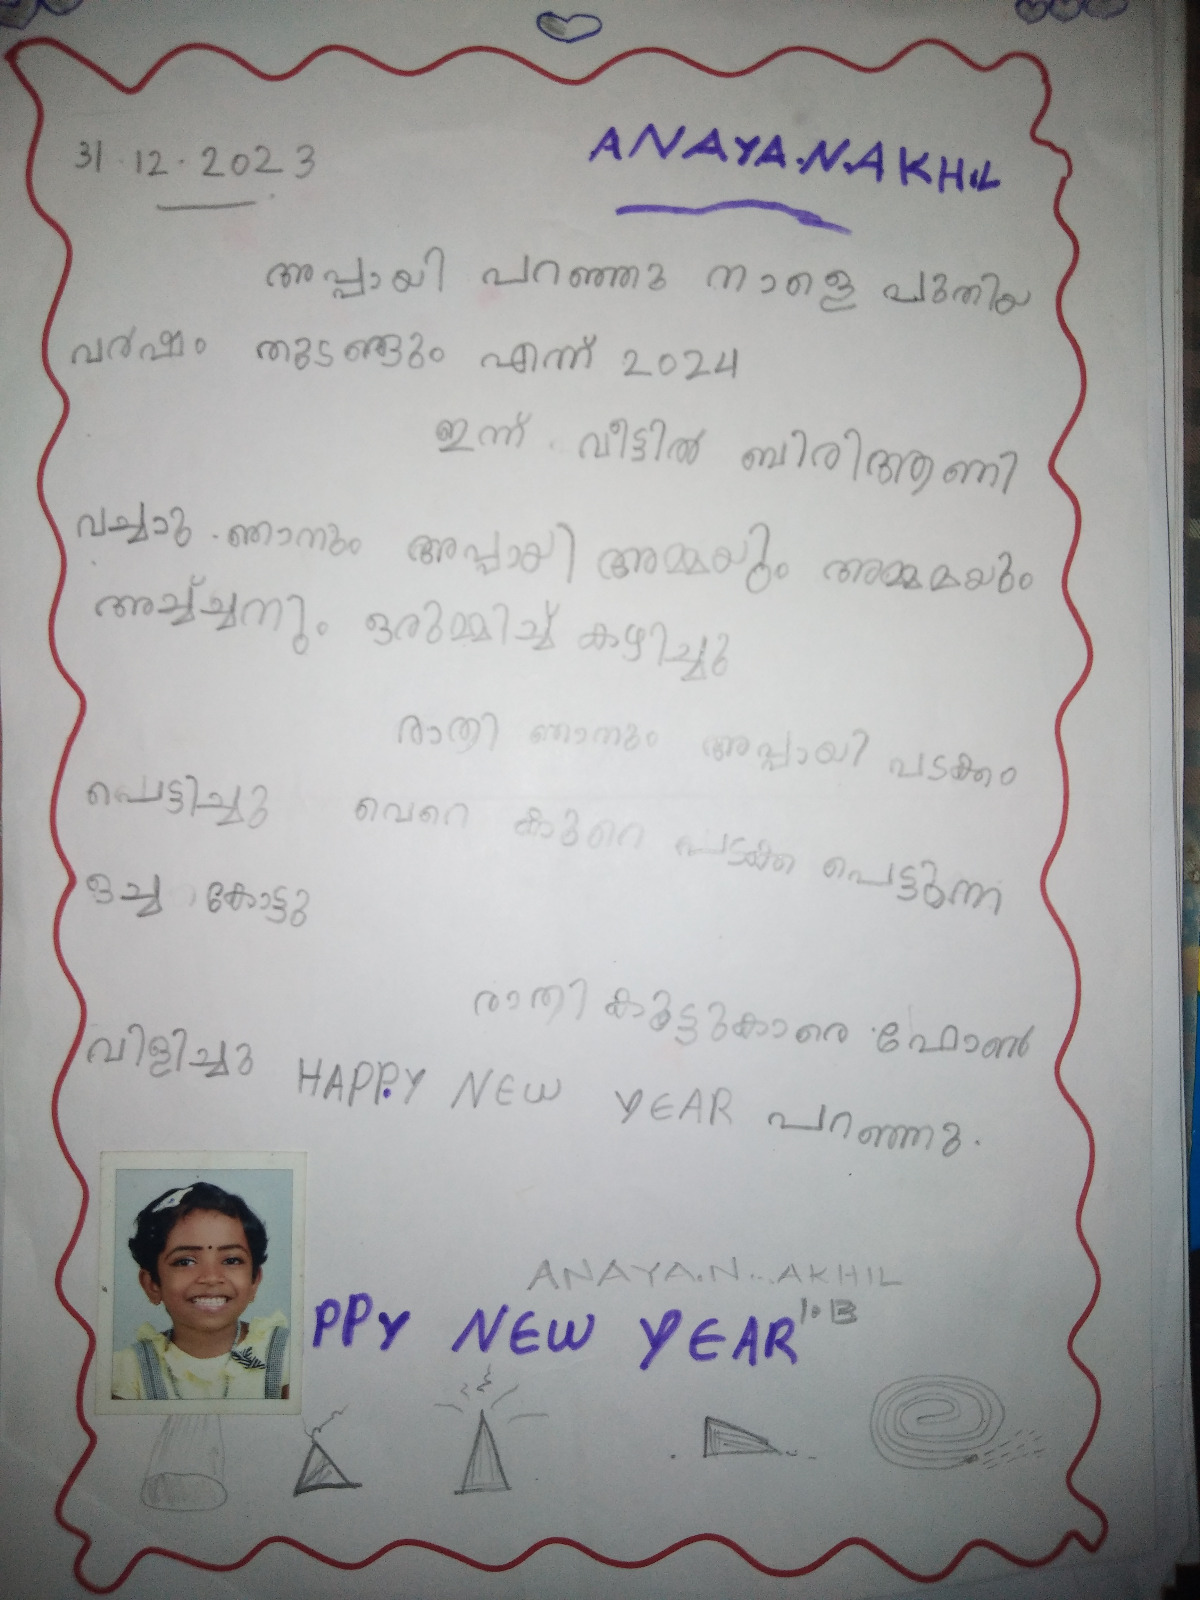 31.12.2023
ANAYA.N.AKHIL
അപ്പായി പറഞ്ഞു നാളെ പുതിയ
വർഷം തുടങ്ങും എന്ന് 2024
ഇന്ന് വീട്ടിൽ ബിരിആണി
വച്ചാു. ഞാനും അപ്പായി അമ്മയും അമ്മമയും
അച്ച്ച്ചനും ഒരുമ്മിച്ച് കഴിച്ചു
രാത്രി ഞാനും അപ്പായി പടക്കം
പെട്ടിച്ചു വെറെ കുറെ പടക്ക പെട്ടുന്ന
ഒച്ച കേട്ടു
രാതി കൂട്ടുകാരെ ഫോൺ
വിളിച്ചു HAPPY NEW YEAR പറഞ്ഞു.
ANAYA.N..AKHIL
1.B
PPY NEW YEAR